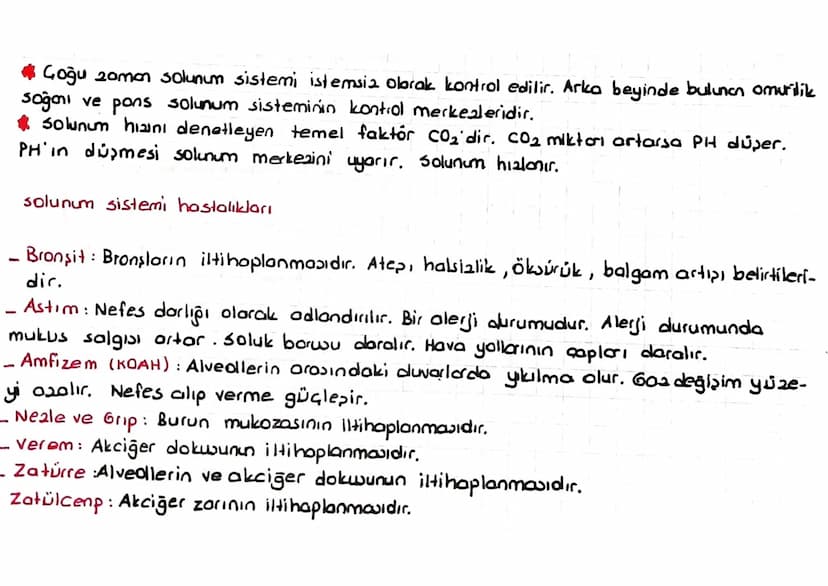 * Çoğu zaman solunum sistemi istemsiz olarak kontrol edilir. Arka beyinde bulunan omurilik
soğanı ve pons solunum sisteminin kontrol merkezleridir.
* Solunum hızını denetleyen temel faktör CO₂'dir. CO₂ miktarı artarsa PH düşer.
PH'ın düşmesi solunum merkezini uyarır. Solunum hızlanır.
solunum sistemi hastalıkları
- Bronşit : Bronşların iltihaplanmasıdır. Ateş, halsizlik, öksürük, balgam artışı belirtileri-
dir.
- Astım : Nefes darlığı olarak adlandırılır. Bir alerji durumudur. Alerji durumunda
mukus salgısı artar. Soluk borusu daralır. Hava yollarının çapları daralır.
- Amfizem (KOAH) : Alveollerin arasındaki duvarlarda yıkılma olur. Gaz değişim yüze-
yi azalır. Nefes alıp verme güçleşir.
- Nezle ve Grip : Burun mukozasının iltihaplanmasıdır.
- Verem : Akciğer dokusunun iltihaplanmasıdır.
- Zatürre : Alveollerin ve akciğer dokusunun iltihaplanmasıdır.
Zatülcenp : Akciğer zarının iltihaplanmasıdır.